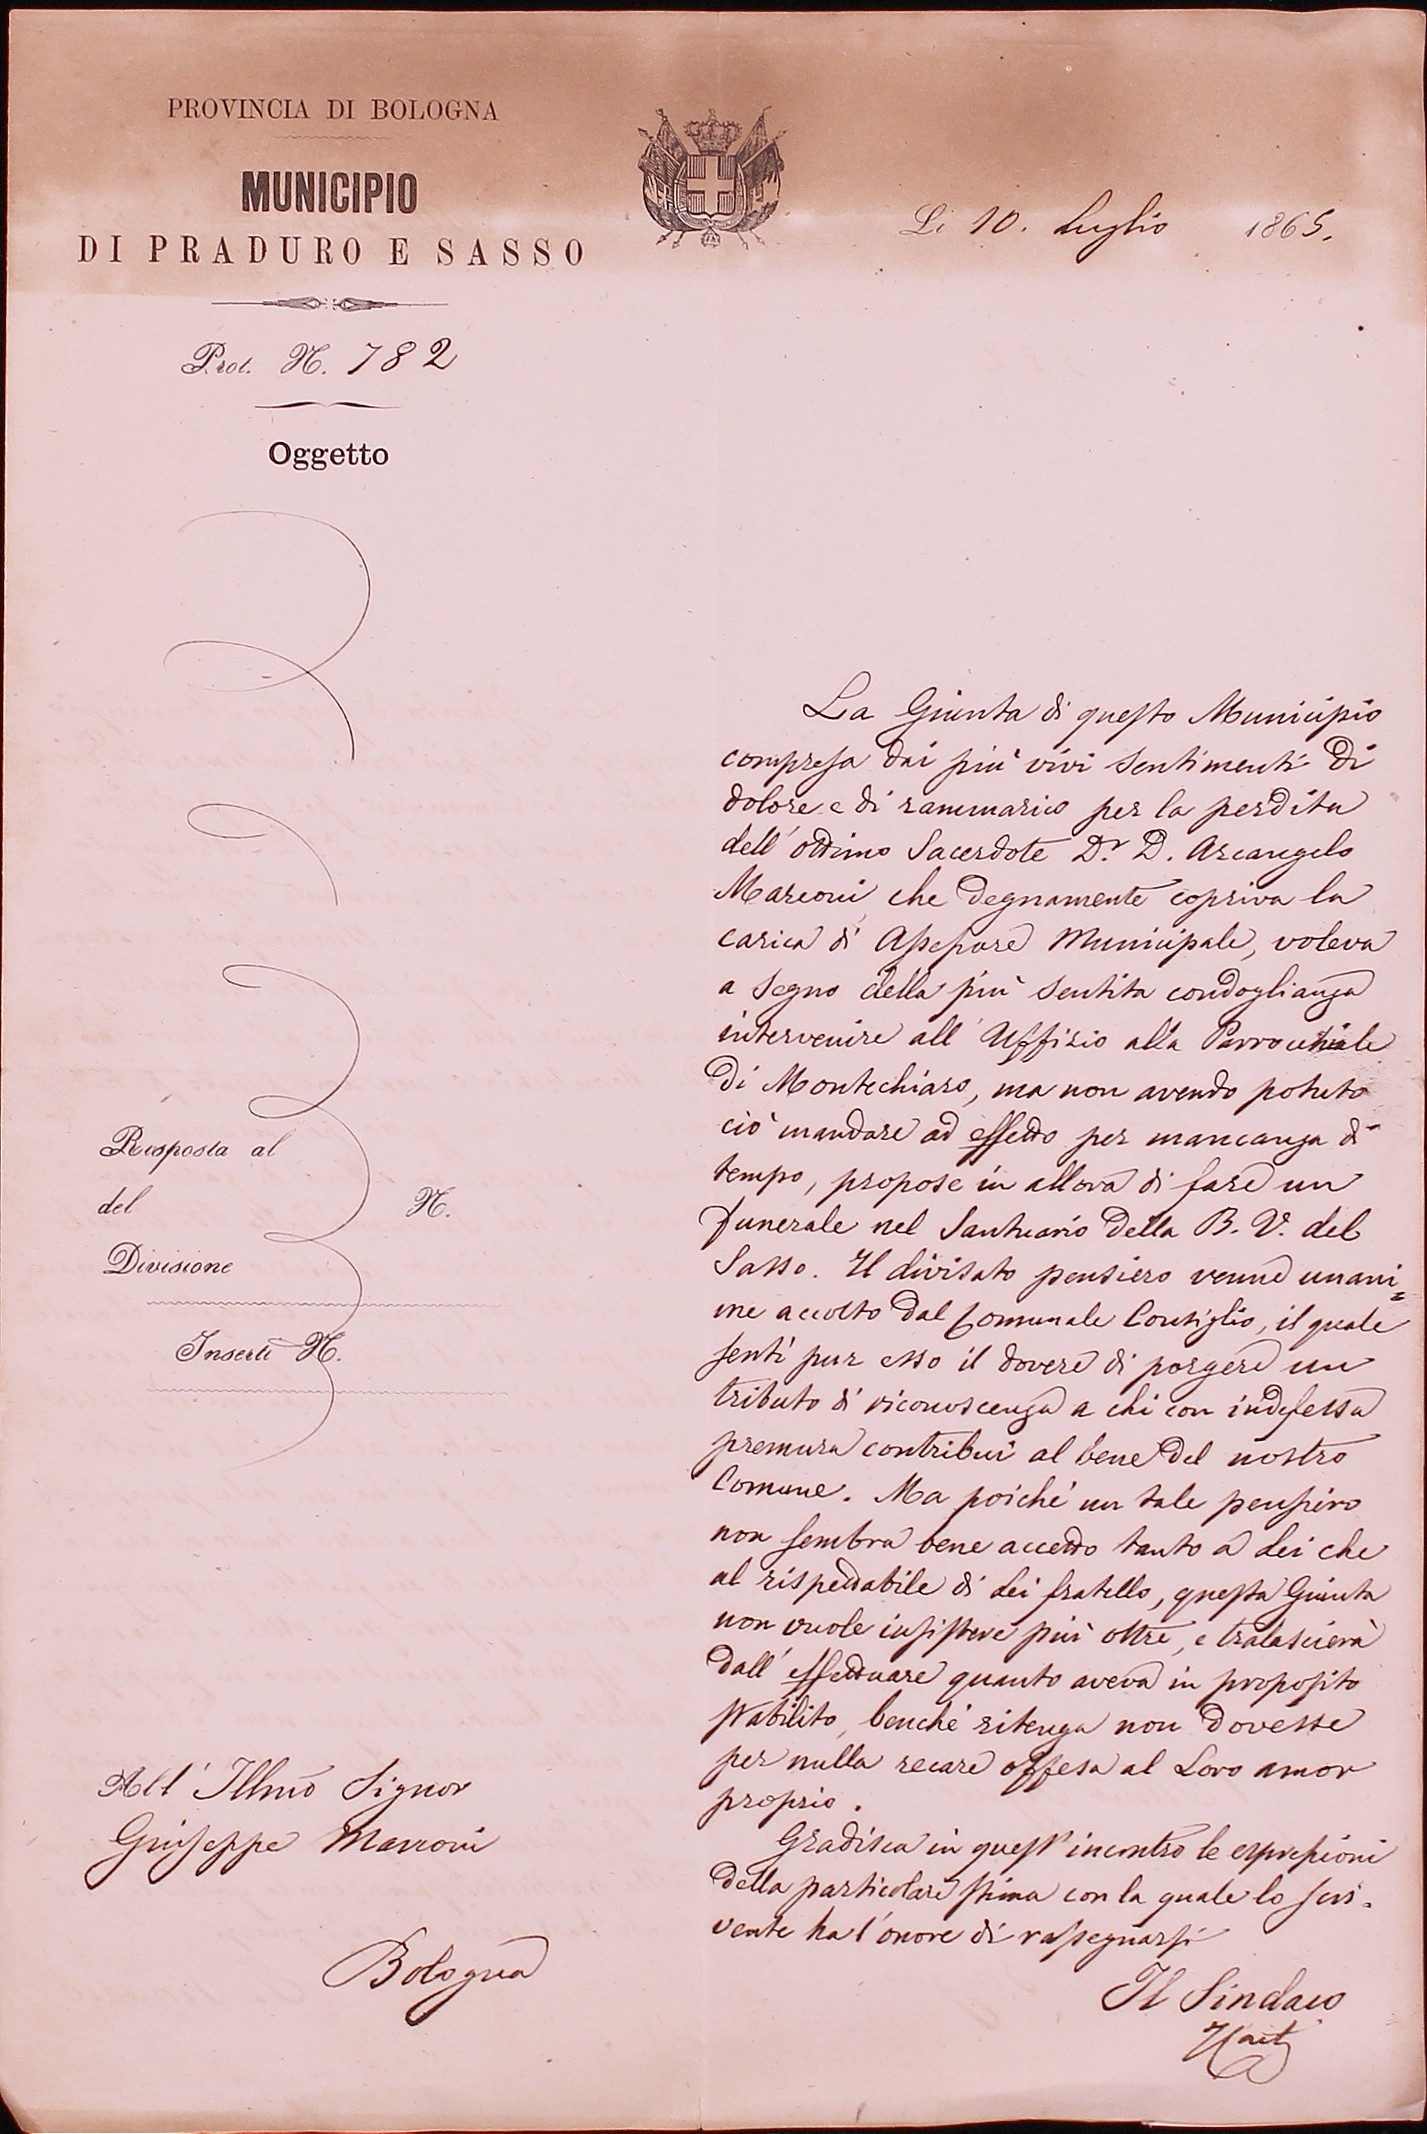 PROVINCIA DI BOLOGNA
MUNICIPIO
DI PRADURO E SASSO
Li 10. Luglio 1865.
Prot. N. 782
Oggetto
La Giunta di questo Municipio
compresa dai più vivi sentimenti di
dolore e di rammarico per la perdita
dell'ottimo Sacerdote Dr. D. Arcangelo
Marconi, che degnamente copriva la
carica di Assessore Municipale, voleva
a segno della più sentita condoglianza
intervenire all'Uffizio alla Parrochiale
di Montechiaro, ma non avendo potuto
ciò mandare ad effetto per mancanza di
tempo, propose in allora di fare un
funerale nel Santuario della B. V. del
Sasso. Il divisato pensiero venne unani=
me accolto dal Comunale Consiglio, il quale
sentì pur esso il dovere di porgere un
tributo di riconoscenza a chi con indefessa
premura contribuì al bene del nostro
Comune. Ma poichè un tale pensiero
non sembra bene accetto tanto a Lei che
al rispettabile di Lei fratello, questa Giunta
non vuole insistere più oltre, e tralascierà
dall'effettuare quanto aveva in proposito
stabilito, benchè ritenga non dovesse
per nulla recare offesa al Loro amor
proprio.
Gradisca in quest'incontro le espressioni
della particolare stima con la quale lo scri-
vente ha l'onore di rassegnarsi
Il Sindaco
Risposta al
del N.
Divisione
Inserti N.
All'Illmo Signor
Giuseppe Marconi
Bologna